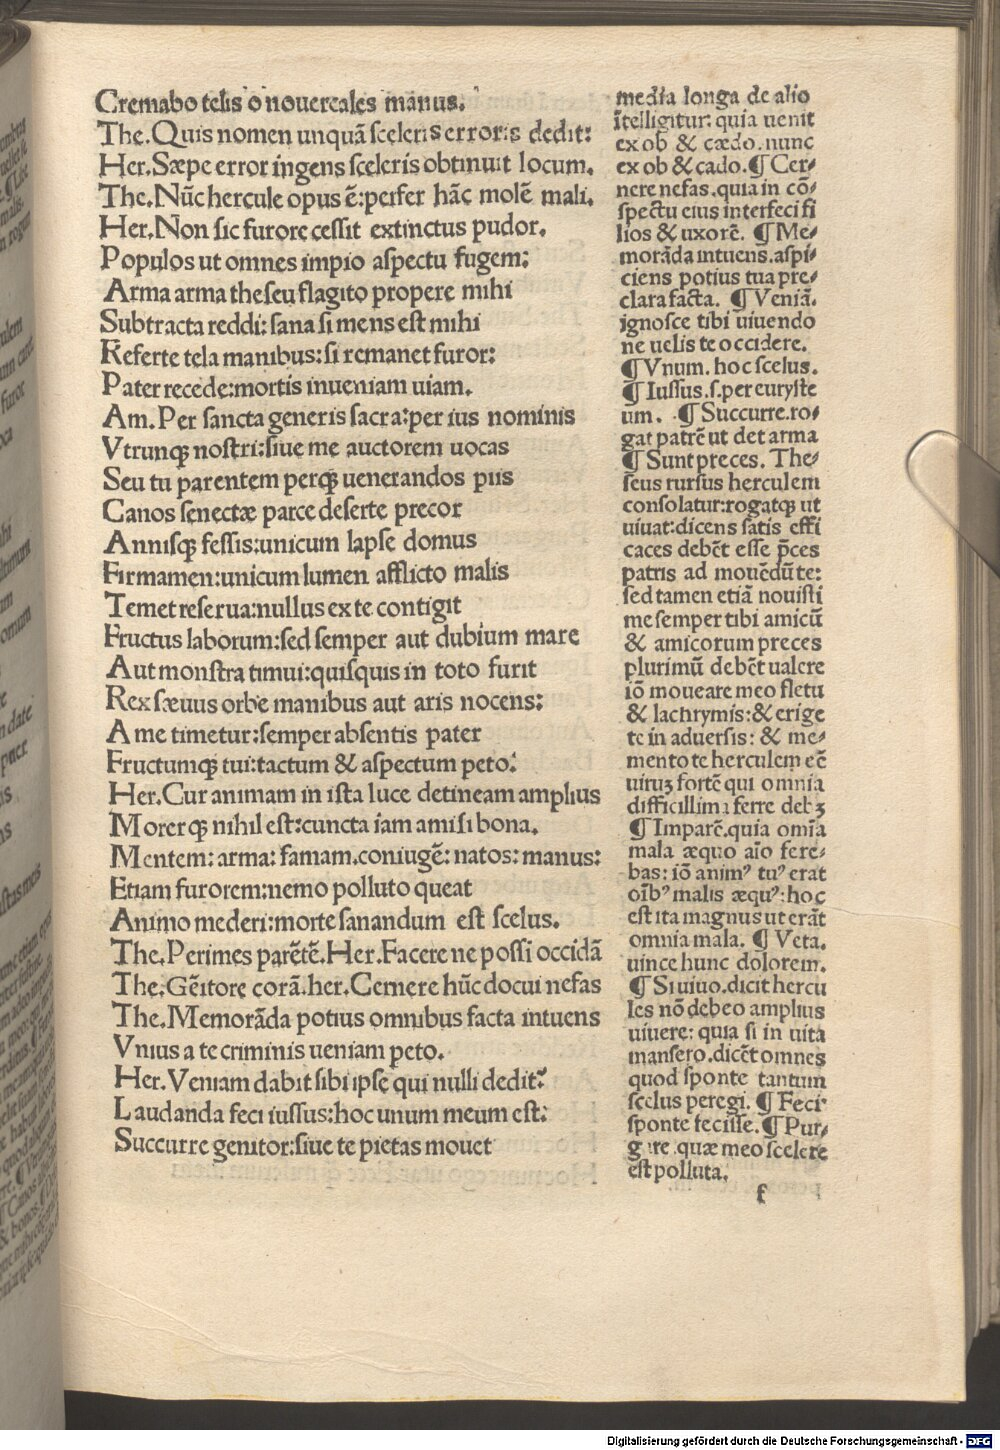 Cremabo telis o nouercales manus.
The.Quis nomen unquã sceleris erroris dedit:
Her.Sæpe error ingens sceleris obtinuit locum.
The.Nũc hercule opus ẽ:perfer hãc molẽ mali.
Her.Non sic furore cessit extinctus pudor.
Populos ut omnes impio aspectu fugem:
Arma arma theseu flagito propere mihi
Subtracta reddi: sana si mens est mihi
Referte tela manibus:si remanet furor:
Pater recede:mortis inueniam uiam.
Am. Per sancta generis sacra:per ius nominis
Vtrunqꝫ nostri:siue me auctorem uocas
Seu tu parentem perqꝫ uenerandos piis
Canos senectæ parce deserte precor
Annisqꝫ fessis:unicum lapse domus
Firmamen:unicum lumen afflicto malis
Temet reserua:nullus ex te contigit
Fructus laborum:sed semper aut dubium mare
Aut monstra timui:quisquis in toto furit
Rex sæuus orbe manibus aut aris nocens:
A me timetur:semper absentis pater
Fructumqꝫ tui:tactum & aspectum peto:
Her.Cur animam in ista luce detineam amplius
Morerqꝫ nihil est:cuncta iam amisi bona.
Mentem: arma: famam.coniugẽ: natos: manus:
Etiam furorem:nemo polluto queat
Animo mederi:morte sanandum est scelus.
The.Perimes parẽtẽ.Her.Facere ne possi occidã
The.Gẽitore corã.her.Cernere hũc docui nefas
The.Memorãda potius omnibus facta intuens
Vnius a te criminis ueniam peto.
Her.Veniam dabit sibi ipse qui nulli dedit:
Laudanda feci iussus:hoc unum meum est:
Succurre genitor:siue te pietas mouet
media longa de alio
ĩtelligitur. quia uenit
ex ob & cædo. nunc
ex ob & cado. ¶ Cer-
nere nefas.quia in cõ-
spectu eius interfeci fi
lios & uxorẽ. ¶ Me-
morãda intuens.aspi-
ciens potius tua pre-
clara facta. ¶ Veniã.
ignosce tibi uiuendo
ne uelis te occidere.
¶ Vnum. hoc scelus.
¶ Iussus.s.per euryste
um. ¶ Succurre.ro-
gat patrẽ ut det arma
¶ Sunt preces. The-
seus rursus herculem
consolatur:rogatqꝫ ut
uiuat:dicens satis effi
caces debẽt esse p̃ces
patris ad mouẽdũ te:
sed tamen etiã nouisti
me semper tibi amicũ
& amicorum preces
plurimũ debẽt ualere
iõ moueare meo fletu
& lachrymis:& erige
te in aduersis: & me-
mento te herculem eẽ
uiruꝫ fortẽ qui omnia
difficillima ferre debꝫ
¶ Imparẽ.quia omĩa
mala æquo aĩo fere-
bas: iõ animꝰ tuꝰ erat
oĩbꝰ malis æquꝰ:hoc
est ita magnus ut erãt
omnia mala. ¶ Veta.
uince hunc dolorem.
¶ Si uiuo.dicit hercu
les nõ debeo amplius
uiuere: quia si in uita
mansero.dicẽt omnes
quod sponte tantum
scelus peregi. ¶ Feci
sponte fecisse. ¶ Pur-
gare.quæ meo scelere
est polluta.
f
Digitalisierung gefördert durch die Deutsche Forschungsgemeinschaft - DFG